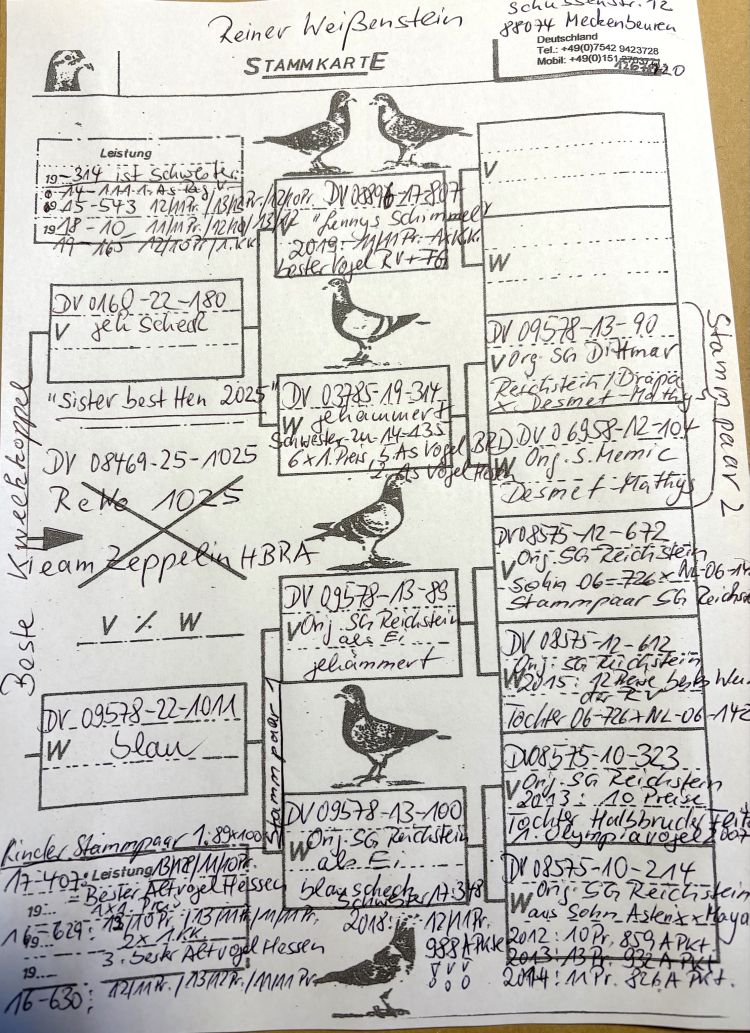 Reiner Weißenstein
Schussenstr. 12
88074 Meckenbeuren
Deutschland
Tel.: +49(0)7542 9423728
Mobil: +49(0)151
STAMMKARTE
Leistung
19 -314 ist Schwester
14-111 1. As
15-543 12/11 Pr. / 13/12 Pr. / 12/10 Pr.
19 18-10 11/11 Pr.
19-165 12/10 Pr. / 1. KK.
DV 0160-22-180
V geh Scheck
"Sister best Hen 2025"
DV 08469-25-1025
ReWe 1025
Team Zeppelin HBRA
V % W
Beste Kweekkoppel
DV 09578-22-1011
W blau
Kinder Stammpaar 1. 89x100
17-407: Leistung 13/12 / 11/10 Pr.
= Bester Altvogel Hessen
19... 1x1. Preis
16-629: 13/10 Pr. / 13/11 Pr. / 11/11 Pr.
19... 2x 1. KK
3. bester Altvogel Hessen
19...
16-630: 12/11 Pr. / 13/12 Pr. / 11/11 Pr.
DV 08896-17-807
V "Lennys Schimmel"
2019: 11/11 Pr. 1x KK.
bester Vogel RV + FG
DV 03785-19-314
W gehämmert
Schwester zu -14-135
6x1. Preis, 5. As Vogel BRD
2. As Vogel Hessen
DV 09578-13-89
V Orig. SG Reichstein
als Ei
gehämmert
Stammpaar 1
DV 09578-13-100
W Orig. SG Reichstein
als Ei
blauscheck
Schwester 17-348
2018: 12/11 Pr.
988 APkte
V
W
DV 09578-13-90
V Org. SG Dittmar
Reichstein / Drapa
x Desmet-Mathys
DV 06958-12-104
W Orig. S. Memic
Desmet-Mathys
Stammpaar 2
DV 08575-12-672
V Orig. SG Reichstein
Sohn 06-726 x NL-06-142
Stammpaar SG Reichst
DV 08575-12-612
Orig. SG Reichstein
W 2015: 12 Preise bestes Wei
der RV
Tochter 06-726 x NL-06-142
DV 08575-10-323
V Orig. SG Reichstein
2013: 10 Preise
Tochter Halbbruder
1. Olympiavogel 2007
DV 08575-10-214
W Orig. SG Reichstein
aus Sohn Asterix x Maya
2012: 10 Pr. 859 APkt.
2013: 13 Pr. 932 APkt
2014: 11 Pr. 826 APkt.